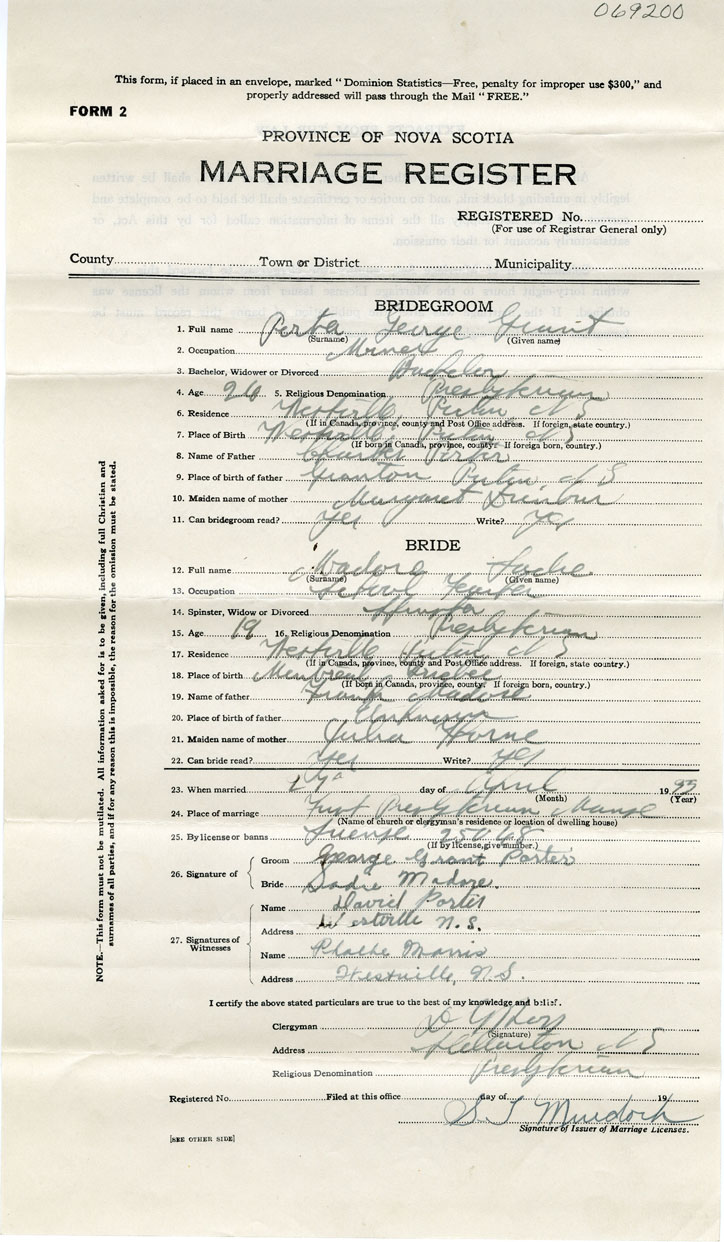 069200
This form, if placed in an envelope, marked "Dominion Statistics—Free, penalty for improper use $300," and
properly addressed will pass through the Mail "FREE."
FORM 2
PROVINCE OF NOVA SCOTIA
MARRIAGE REGISTER
REGISTERED No.
(For use of Registrar General only)
County Town or District Municipality
BRIDEGROOM
1. Full name Porter George Grant
(Surname) (Given name)
2. Occupation Miner
3. Bachelor, Widower or Divorced Bachelor
4. Age 26 5. Religious Denomination Presbyterian
6. Residence Westville, Pictou, N S
(If in Canada, province, county and Post Office address. If foreign, state country.)
7. Place of Birth Westville Pictou N S
(If born in Canada, province, county. If foreign born, country.)
8. Name of Father Charles Porter
9. Place of birth of father Granton Pictou, N S
10. Maiden name of mother Margaret Dunbar
11. Can bridegroom read? Yes Write? Yes
BRIDE
12. Full name Madore Sadie
(Surname) (Given name)
13. Occupation School Teacher
14. Spinster, Widow or Divorced Spinster
15. Age 19 16. Religious Denomination Presbyterian
17. Residence Westville Pictou N S
(If in Canada, province, county and Post Office address. If foreign, state country.)
18. Place of birth Montreal Quebec
(If born in Canada, province, county. If foreign born, country.)
19. Name of father Frank Madore
20. Place of birth of father Unknown
21. Maiden name of mother Julia Horne
22. Can bride read? Yes Write? Yes
23. When married day of April 19
(Month) (Year)
24. Place of marriage First Presbyterian Manse
(Name of church or clergyman's residence or location of dwelling house)
25. By license or banns License 25068
(If by license, give number.)
26. Signature of
Groom George Grant Porter
Bride Sadie Madore.
27. Signatures of Witnesses
Name David Porter
Address Westville N.S.
Name Phoebe Morris
Address Westville, N.S.
I certify the above stated particulars are true to the best of my knowledge and belief.
Clergyman
(Signature)
Address Stellarton N S
Religious Denomination Presbyterian
Registered No. Filed at this office day of 19
S. T Murdoch
Signature of Issuer of Marriage Licenses.
[SEE OTHER SIDE]
NOTE.—This form must not be mutilated. All information asked for is to be given, including full Christian and
surnames of all parties, and if for any reason this is impossible, the reason for the omission must be stated.